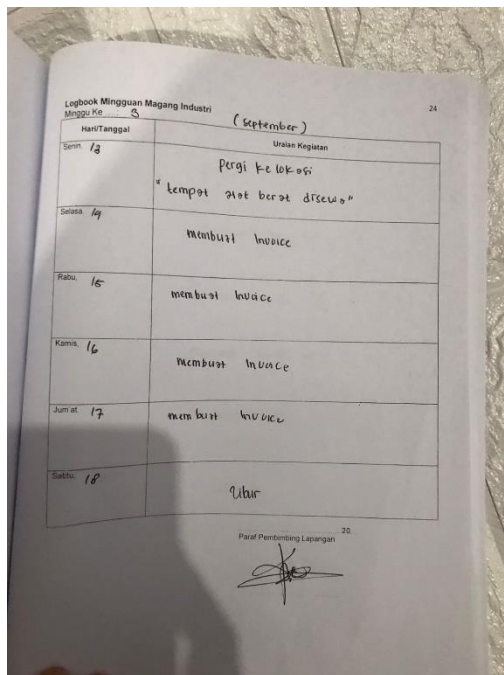 Logbook Mingguan Magang Industri
24
Minggu Ke ..... : 3
(September)
Hari/Tanggal
Uraian Kegiatan
Senin, 13
Pergi ke lokasi
"tempat alat berat disewa"
Selasa, 14
membuat Invoice
Rabu, 15
membuat Invoice
Kamis, 16
membuat Invoice
Jum'at, 17
membuat Invoice
Sabtu, 18
Libur
....................... 20.....
Paraf Pembimbing Lapangan